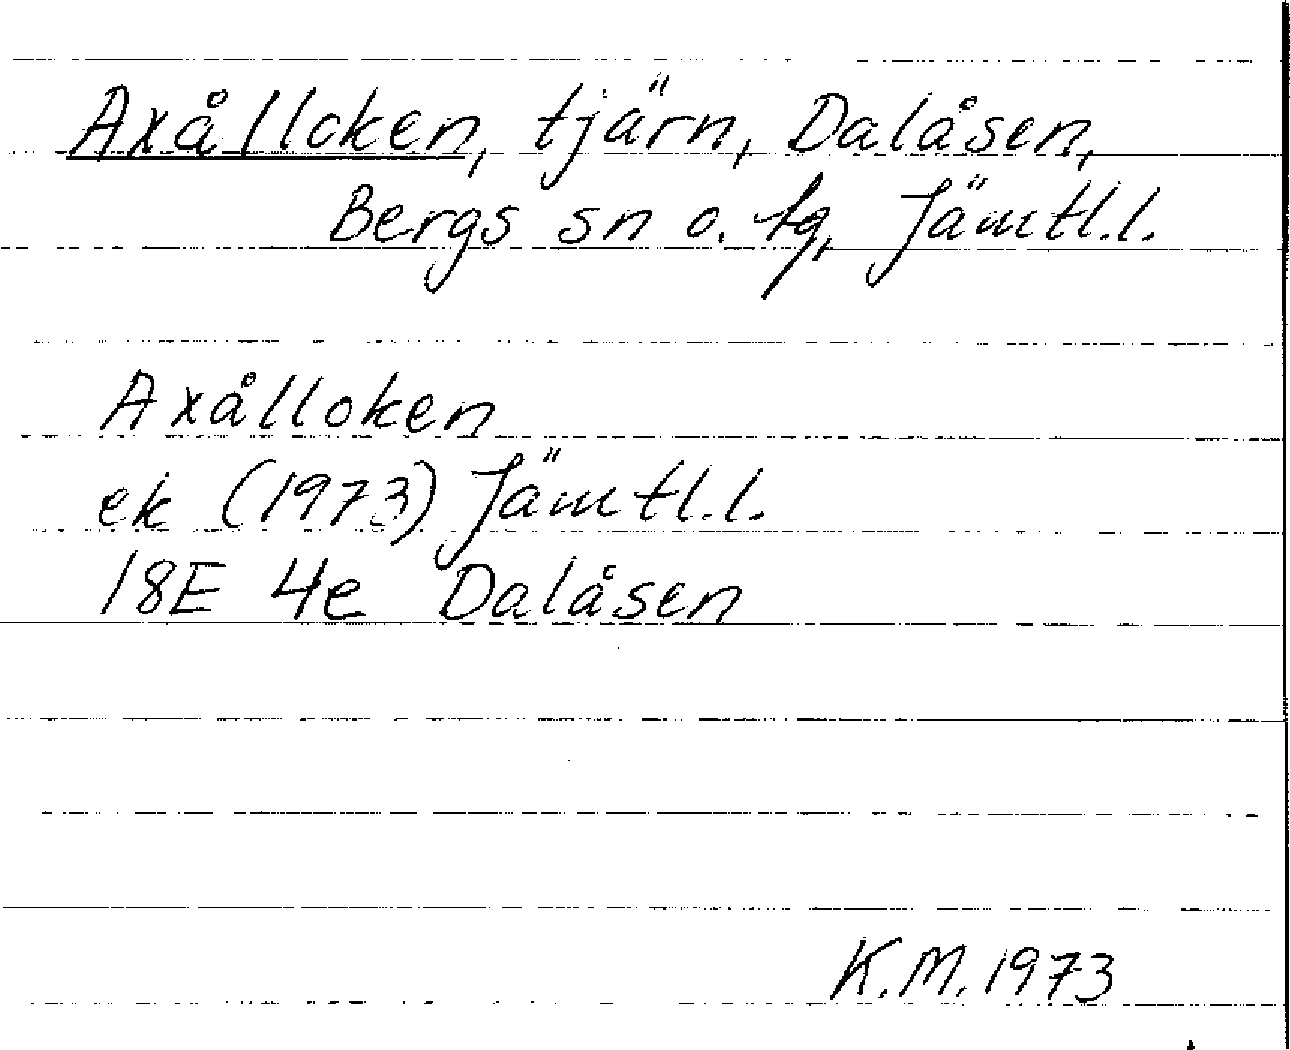 Axålloken, tjärn, Dalåsen,
Bergs sn o. tg, Jämtl.l.
Axålloken
ek (1973) Jämtl.l.
18E 4e Dalåsen
K.M. 1973